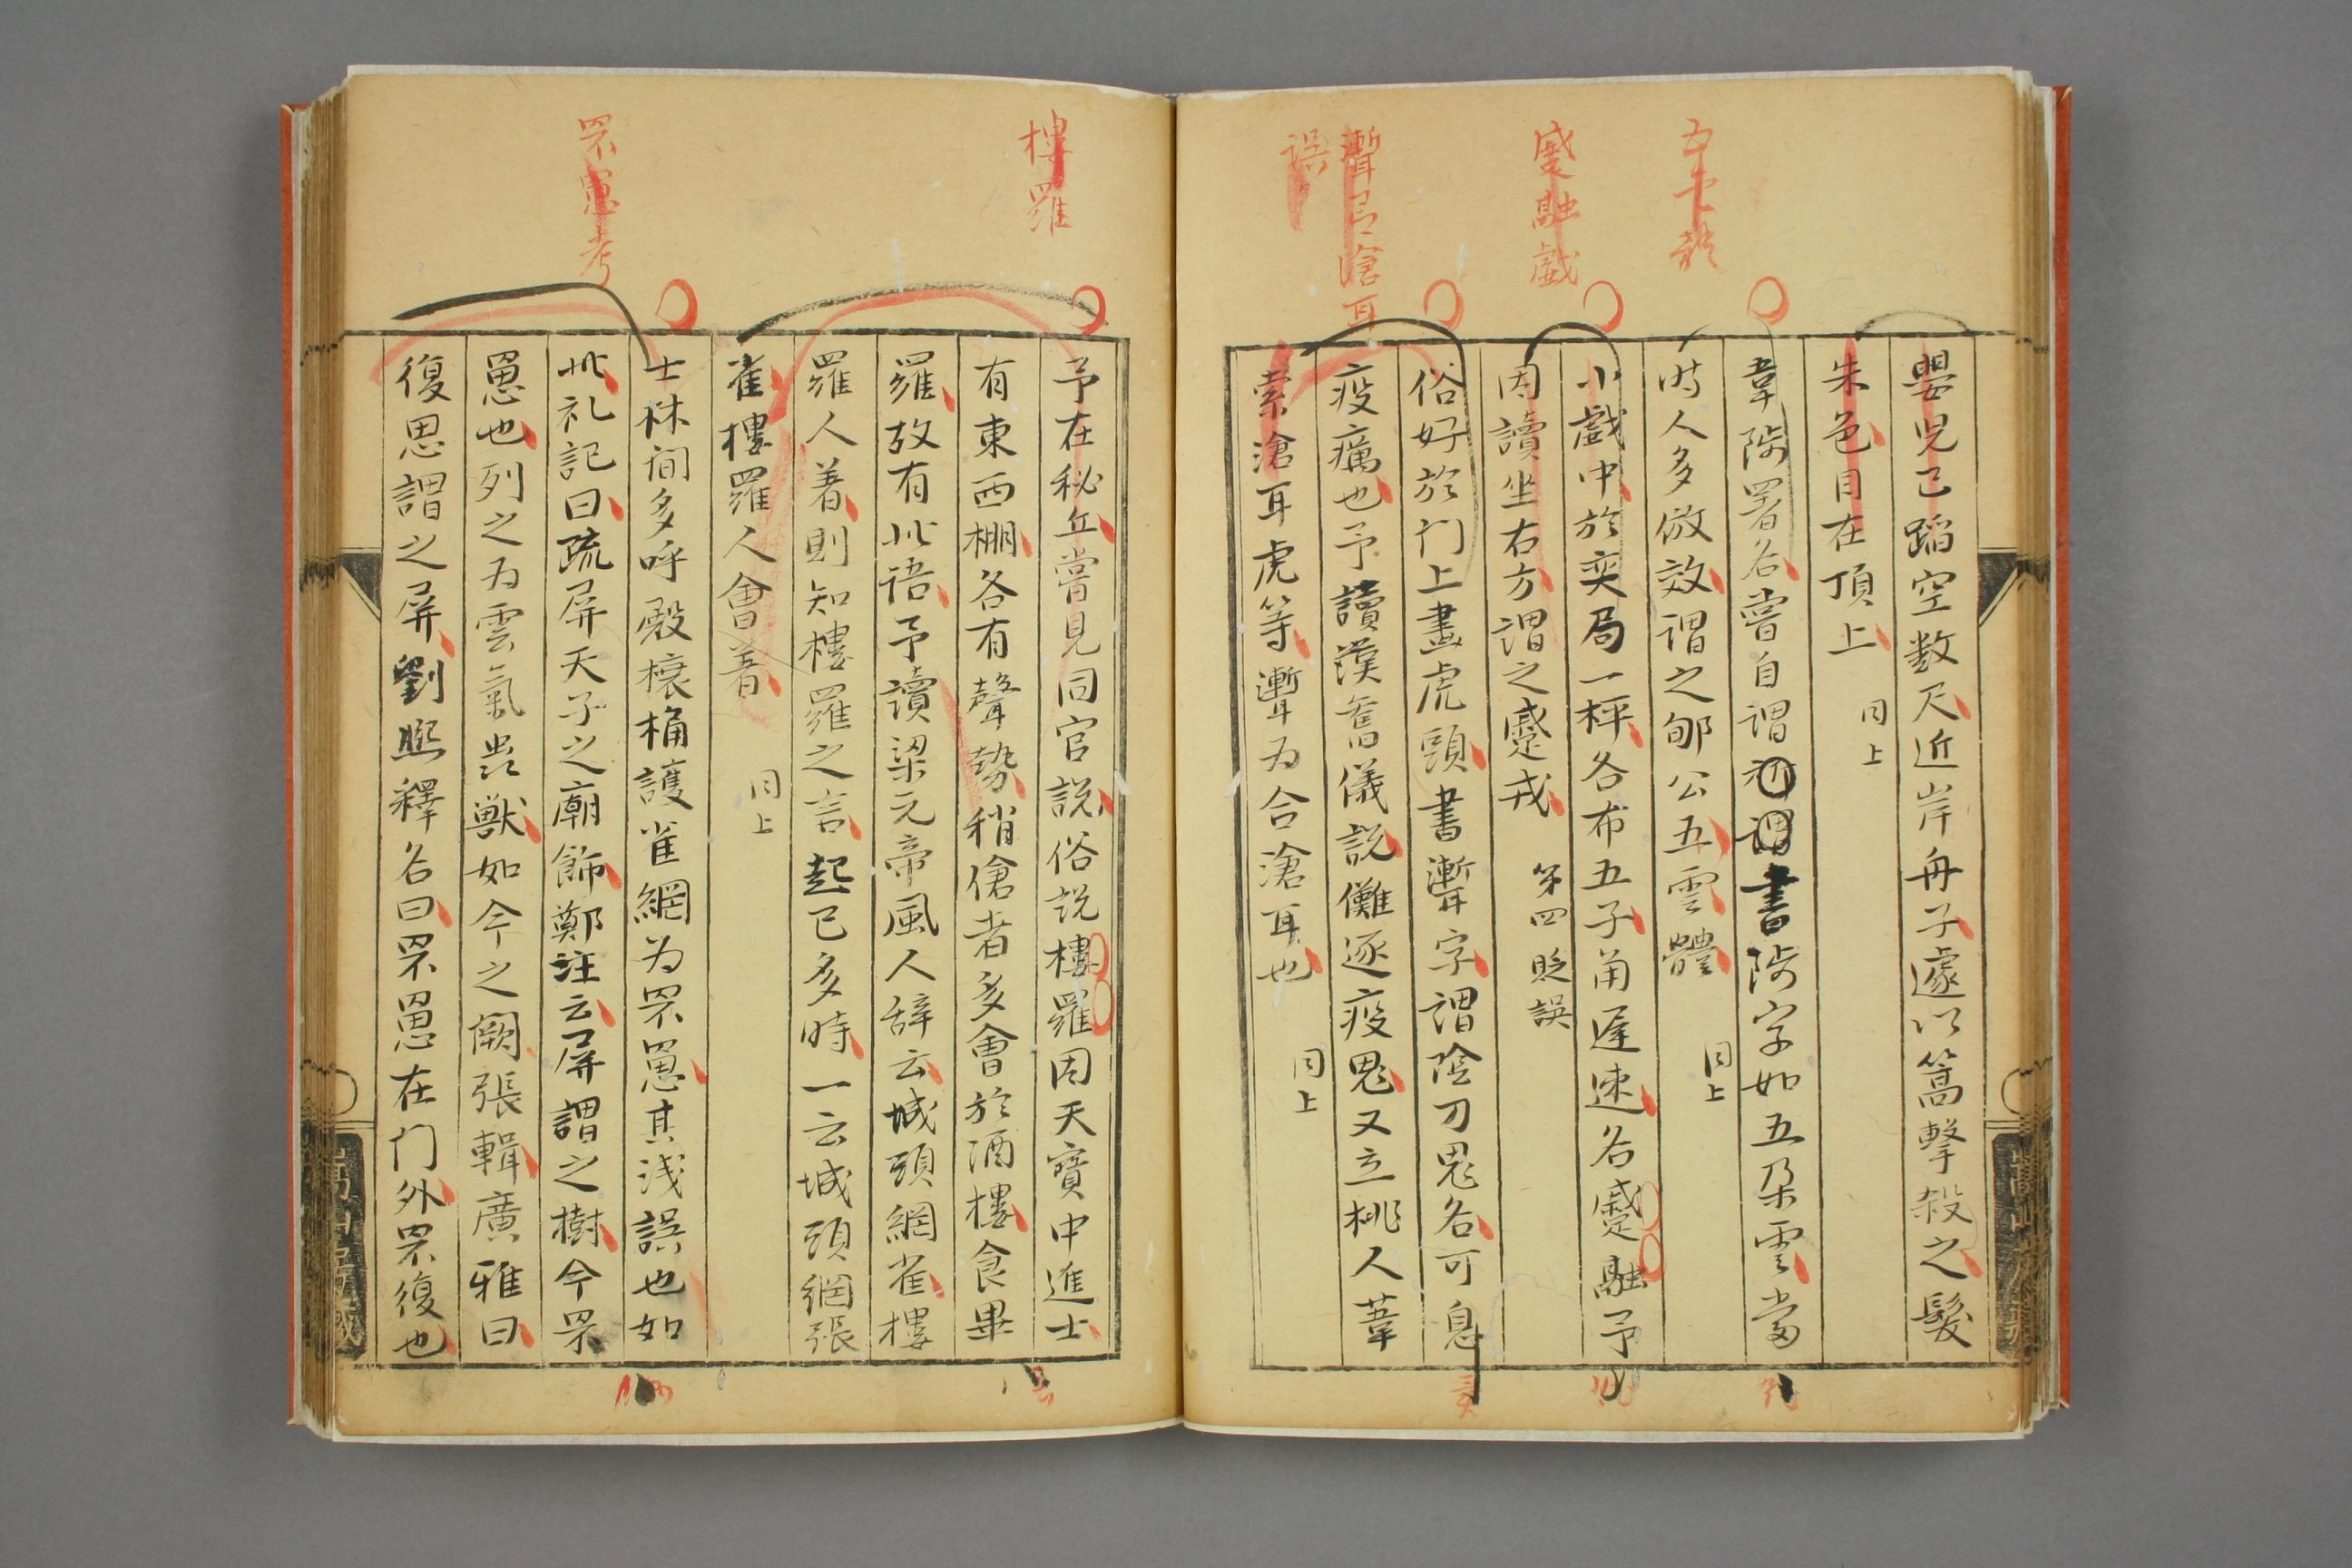 嬰児已蹈空数尺近岸舟子遽以篙擊殺之髪
朱色目在頂上 同上
韋陟署名嘗自謂所謂書陟字如五朶雲當
时人多倣效谓之郇公五雲體 同上
小戲中於奕局一枰各布五子角遲速名蹙融予
因讀坐右方谓之蹙戎 第四 貶誤
俗好於门上畫虎頭書聻字謂陰刀鬼名可息
疫癘也予讀漢舊儀説儺逐疫鬼又立桃人葦
索滄耳虎等聻为合滄耳也 同上
五雲體
蹙融戲
聻音滄耳
誤
予在秘丘嘗見同官説俗说樓羅因天寶中進士
有東西棚各有聲勢稍傖者多會於酒樓食畢
羅故有此语予讀梁元帝風人辞云城頭網雀樓
羅人着則知樓羅之言起已多時一云城頭網張
雀樓羅人會着 同上
士林间多呼殿榱桷護雀網为罘罳其浅誤也如
此礼記曰疏屏天子之廟飾鄭注云屏謂之樹今罘
罳也列之为雲氣虫獣如今之闕張輯廣雅曰
復思謂之屏劉熙釋名曰罘罳在门外罘復也
樓羅
罘罳考